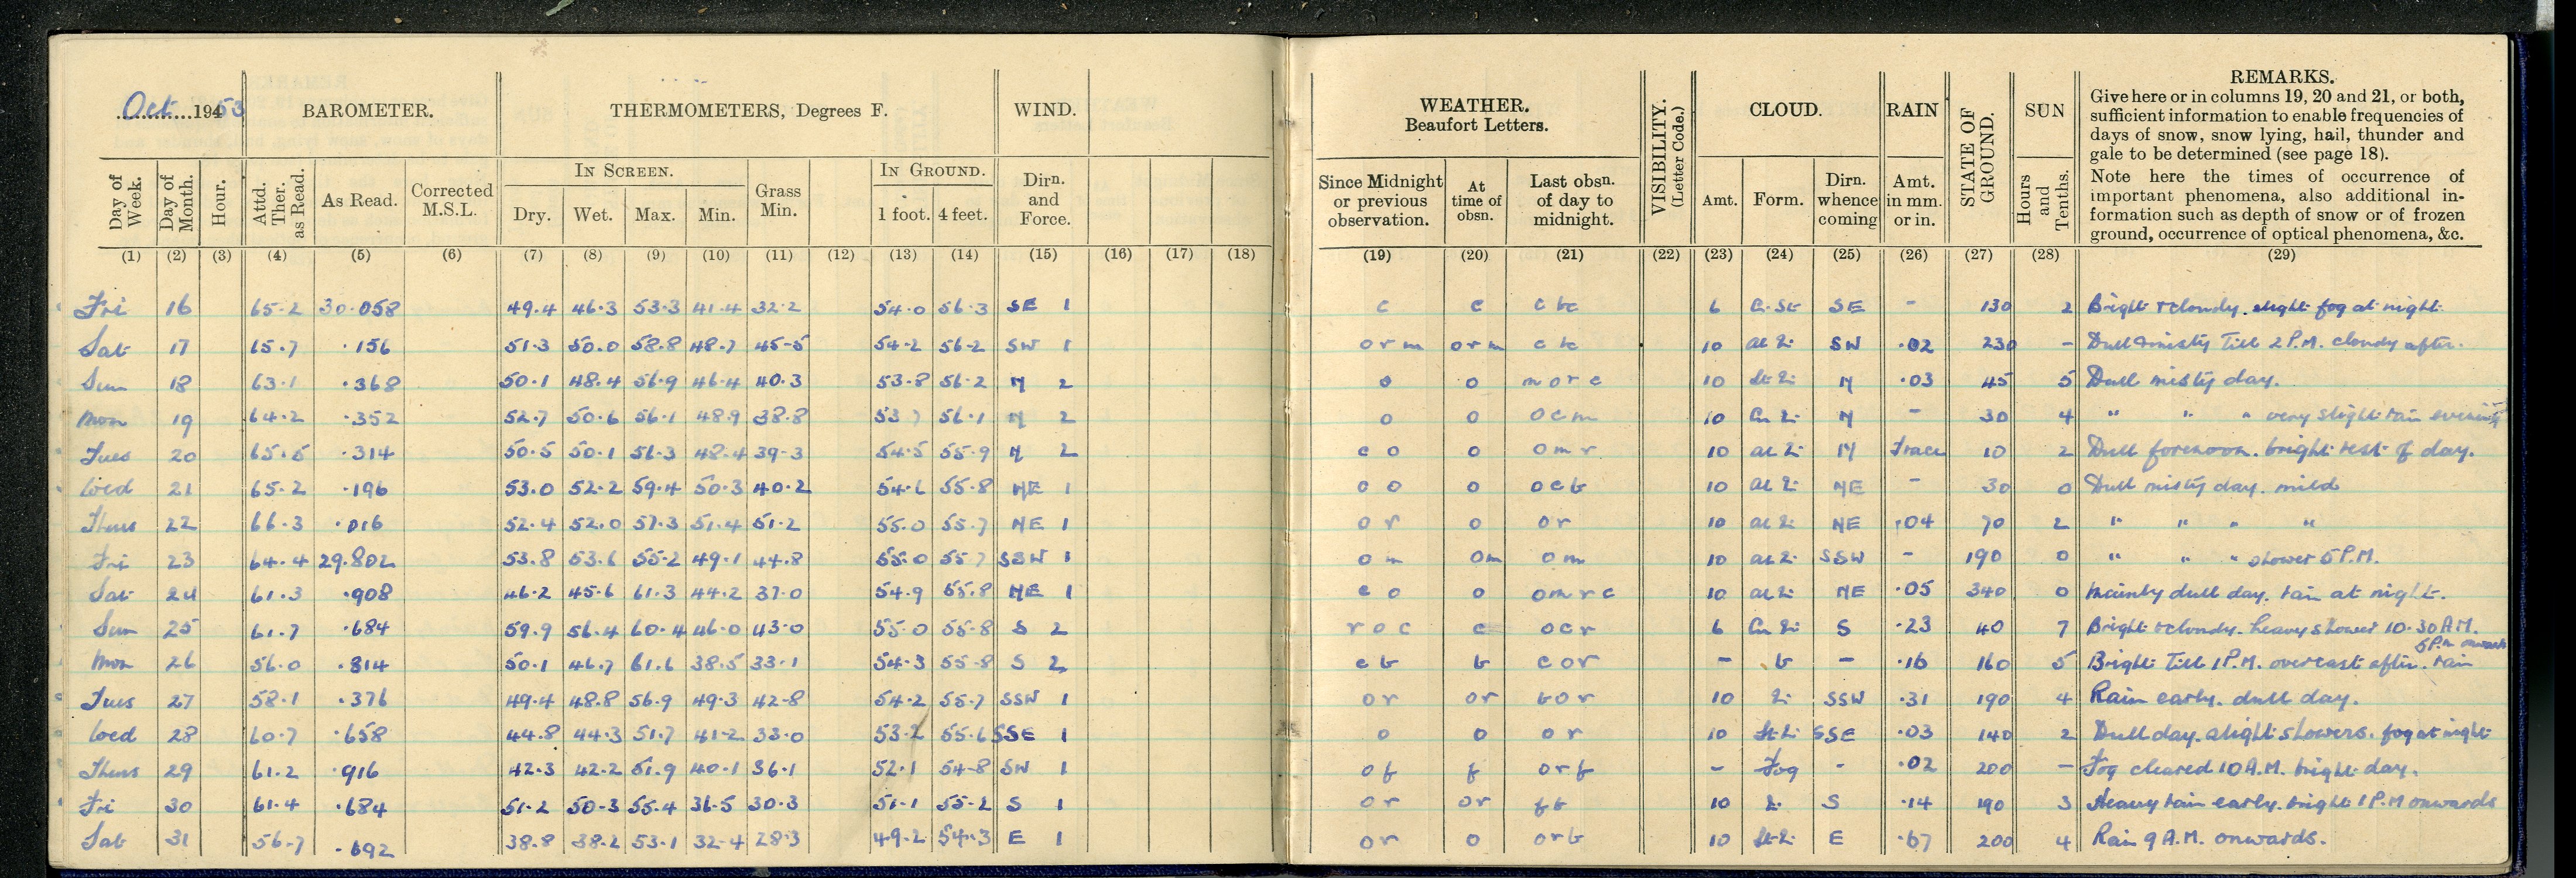 Oct 1953 BAROMETER. THERMOMETERS, Degrees F. WIND.
IN SCREEN. IN GROUND.
Day of Week. Day of Month. Hour. Attd. Ther. as Read. As Read. Corrected M.S.L. Dry. Wet. Max. Min. Grass Min. 1 foot. 4 feet. Dirn. and Force.
(1) (2) (3) (4) (5) (6) (7) (8) (9) (10) (11) (12) (13) (14) (15) (16) (17) (18)
Fri 16 65.2 30.058 49.4 46.3 53.3 41.4 32.2 54.0 56.3 SE 1
Sat 17 65.7 .156 51.3 50.0 58.8 48.7 45.5 54.2 56.2 SW 1
Sun 18 63.1 .368 50.1 48.4 56.9 46.4 40.3 53.8 56.2 N 2
Mon 19 64.2 .352 52.7 50.6 56.1 48.9 38.8 53 7 56.1 N 2
Tues 20 65.5 .314 50.5 50.1 56.3 48.4 39.3 54.5 55.9 N 2
Wed 21 65.2 .196 53.0 52.2 59.4 50.3 40.2 54.6 55.8 NE 1
Thurs 22 66.3 .016 52.4 52.0 57.3 51.4 51.2 55.0 55.7 NE 1
Fri 23 64.4 29.802 53.8 53.6 55.2 49.1 44.8 55.0 55.7 SSW 1
Sat 24 61.3 .908 46.2 45.6 61.3 44.2 37.0 54.9 55.8 NE 1
Sun 25 61.7 .684 59.9 56.4 60.4 46.0 43.0 55.0 55.8 S 2
Mon 26 56.0 .814 50.1 46.7 61.6 38.5 33.1 54.3 55.8 S 2
Tues 27 58.1 .376 49.4 48.8 56.9 49.3 42.8 54.2 55.7 SSW 1
Wed 28 60.7 .658 44.8 44.3 51.7 41.2 33.0 53.2 55.6 SSE 1
Thurs 29 61.2 .916 42.3 42.2 51.9 40.1 36.1 52.1 54.8 SW 1
Fri 30 61.4 .684 51.2 50.3 55.4 36.5 30.3 51.1 55.2 S 1
Sat 31 56.7 .692 38.8 38.2 53.1 32.4 28.3 49.2 54.3 E 1
WEATHER. Beaufort Letters. VISIBILITY. (Letter Code.) CLOUD. RAIN STATE OF GROUND. SUN REMARKS.
Give here or in columns 19, 20 and 21, or both,
sufficient information to enable frequencies of
days of snow, snow lying, hail, thunder and
gale to be determined (see page 18).
Note here the times of occurrence of
important phenomena, also additional in-
formation such as depth of snow or of frozen
ground, occurrence of optical phenomena, &c.
Since Midnight or previous observation. At time of obsn. Last obsn. of day to midnight. Amt. Form. Dirn. whence coming Amt. in mm. or in. Hours and Tenths.
(19) (20) (21) (22) (23) (24) (25) (26) (27) (28) (29)
c c c bc 6 SE - 130 2 Bright & cloudy. slight fog at night
o r m o r m c bc 10 SW .02 230 - Dull & misty Till 2 P.M. cloudy after.
o o m o r c 10 N .03 45 5 Dull misty day.
o o o c m 10 N - 30 4 " " " very slight rain evening
c o o o m r 10 N Trace 10 2 Dull forenoon. bright rest of day.
o o o o c b 10 NE - 30 0 Dull misty day. mild
o r o o r 10 NE .04 70 2 " " " "
o m o m o m 10 SSW - 190 0 " " " shower 5 P.M.
c o o o m r c 10 NE .05 340 0 Mainly dull day. rain at night.
r o c c o c r 6 S .23 40 7 Bright & cloudy. heavy shower 10.30 A.M.
c b b c o r - b - .16 160 5 Bright Till 1 P.M. overcast after. rain 5 P.m onwards
o r o r b o r 10 SSW .31 190 4 Rain early. dull day.
o o o r 10 SSE .03 140 2 Dull day. slight showers. fog at night
o f f o r f - Fog - .02 200 - Fog cleared 10 A.M. bright day.
o r o r f b 10 S .14 190 3 Heavy rain early. bright 1 P.M onwards
o r o o r b 10 E .67 200 4 Rain 9 A.M. onwards.